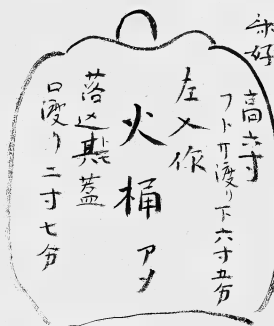 好
高六寸
フト廿渡り下六寸五分
左入作
火桶 アメ
落込蓋
口渡り 二寸七分